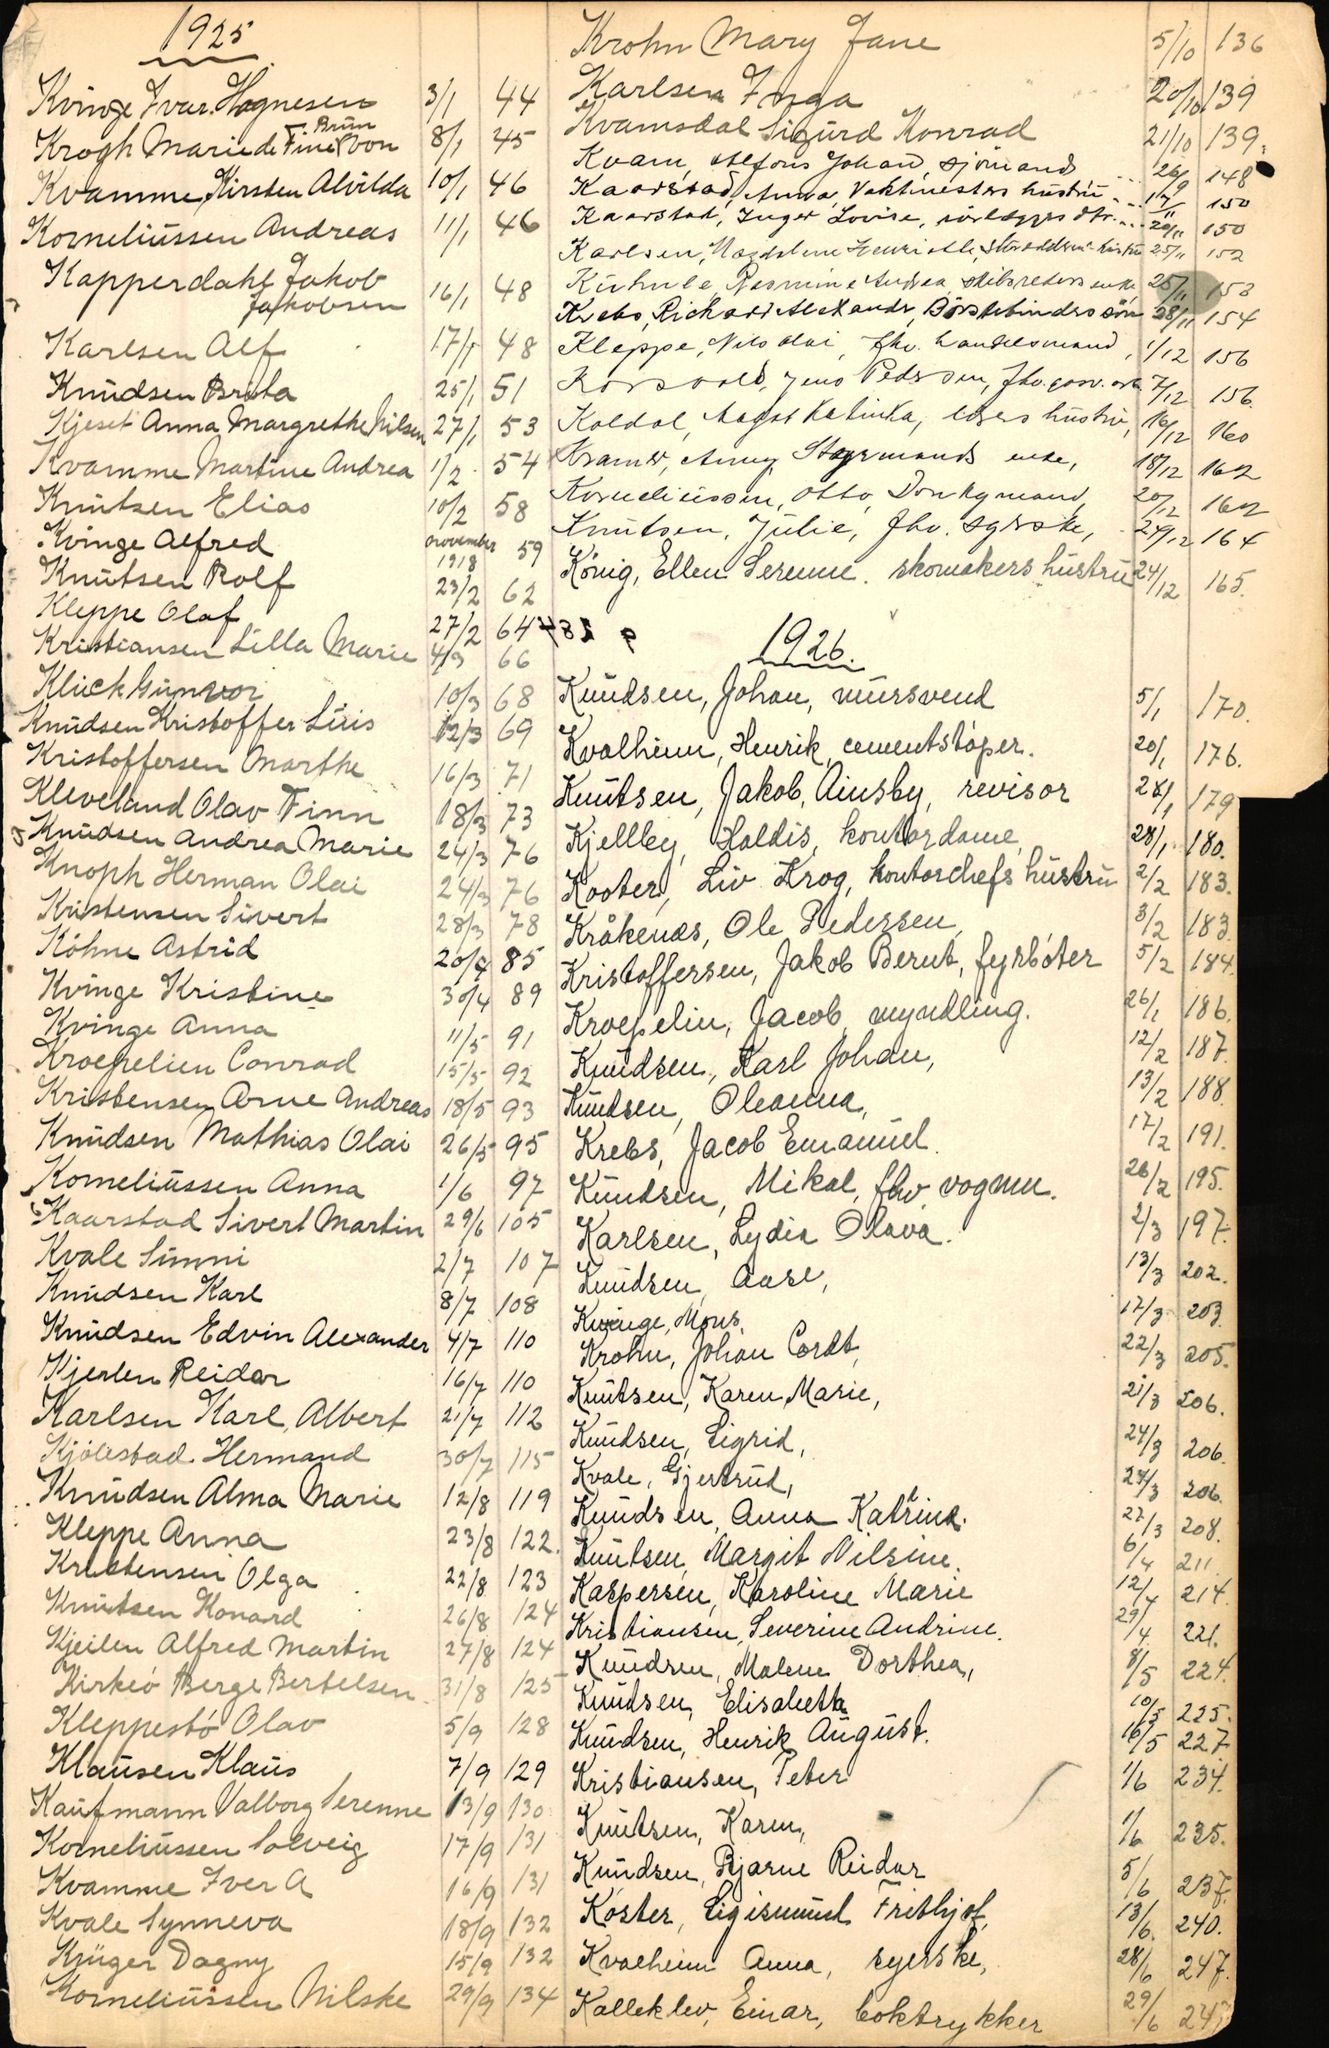 1925
Kvinge Ivar Hognesen 3/1 44
Krogh Marie de Fine Brun von 8/1 45
Kvamme, Kirsten Alvilda 10/1 46
Korneliussen Andreas 11/1 46
Kapperdahl Jakob
Jakobsen 16/1 48
Karlsen Alf 17/1 48
Knudsen Brita 25/1 51
Kjeset Anna Margrethe Nilsen 27/1 53
Kvamme Martine Andrea 1/2 54
Knutsen Elias 10/2 58
Kvinge Alfred november 1918 59
Knutsen Rolf 23/2 62
Kleppe Olaf 27/2 64
Kristiansen Lilla Marie 4/3 66
Klück Gunvor 10/3 68
Knudsen Kristoffer Luis 12/3 69
Kristoffersen Marthe 16/3 71
Kleveland Olav Finn 18/3 73
Knudsen Andrea Marie 24/3 76
Knoph Herman Olai 24/3 76
Kristensen Sivert 28/3 78
Köhne Astrid 20/4 85
Kvinge Kristine 30/4 89
Kvinge Anna 11/5 91
Kroepelien Conrad 15/5 92
Kristensen Arne Andreas 18/5 93
Knudsen Mathias Olai 26/5 95
Korneliussen Anna 1/6 97
Kaarstad Sivert Martin 29/6 105
Kvale Sunni 2/7 107
Knudsen Karl 8/7 108
Knudsen Edvin Alexander 4/7 110
Kjerlen Reidar 16/7 110
Karlsen Karl Albert 21/7 112
Kjölestad Hermand 30/7 115
Knudsen Alma Marie 12/8 119
Kleppe Anna 23/8 122.
Kristensen Olga 22/8 123
Knutsen Konard 26/8 124
Kjeilen Alfred Martin 27/8 124
Kirkeö Berge Bertelsen 31/8 125
Kleppestö Olav 5/9 128
Klausen Klaus 7/9 129
Kaufmann Valborg Serenne 13/9 130
Korneliussen Solveig 17/9 131
Kvamme Iver A 16/9 131
Kvale Synneva 18/9 132
Krüger Dagny 15/9 132
Korneliussen Nilske 29/9 134
Krohn Mary Jane 5/10 136
Karlsen Inga 20/10 139
Kvamsdal Sigurd Konrad 21/10 139.
Kvam, Johan, sjömand 26/9 148
Kaarstad, Anna, Vaktmesters hustru 150
Kaarstad, Inger Lovise, dtr. 20/11 150
Karlsen, Magdalene Henriette, 25/11 152
Rasmine Andrea, skibsreders enke, 25/11 153
Krebs, Richard Alexander, Börstebinders sön 28/11 154
Kleppe, Nils Olai, fhv. handelsmand, 1/12 156
Jens Pedersen, fhv. 7/12 156.
Koldal, Katinka, hustru, 16/12 160
Kramer, Anny, Styrmands enke, 18/12 162
Korneliussen, Otto, Donkymand, 20/12 162
Knutsen, Julie, fhv. syerske, 24/12 164
König, Ellen Serenne. skomakers hustru 24/12 165.
1926.
Knudsen, Johan, mursvend 5/1 170.
Kvalheim, Henrik, cementstöper. 20/1 176.
Knutsen, Jakob, Ainsby, revisor 28/1 179
Kjellby, Haldis, kontordame, 28/1 180.
Kooter, Liv Krog, kontorchefs hustru 2/2 183.
Kråkenes, Ole Pedersen, 3/2 183
Kristoffersen, Jakob Bernt, fyrböter 5/2 184.
Kroepelin, Jacob, myndling. 26/1 186.
Knudsen, Karl Johan, 12/2 187.
Knudsen, Oleanna, 13/2 188.
Krebs, Jacob Emanuel. 17/2 191.
Knudsen, Mikal, fhv vognm. 26/2 195.
Karlsen, Lydia Olava. 2/3 197.
Knudsen, Aase, 13/3 202.
Kvinge, Mons, 17/3 203.
Krohn, Johan Cordt, 22/3 205.
Knutsen, Karen Marie, 21/3 206.
Knudsen, Sigrid, 24/3 206.
Kvale, Gjertrud, 24/3 206.
Knudsen, Anna Katrina. 22/3 208.
Knutsen, Margit Nilsine. 6/4 211
Kaspersen, Karoline Marie 12/4 214.
Kristiansen, Severine Andrine. 29/4 221.
Knudsen, Malene Dorthea, 8/5 224.
Knudsen, Elisabeth 10/5 225.
Knudsen, Henrik August. 16/5 227
Kristiansen, Peter 1/6 234.
Knutsen, Karen, 1/6 235.
Knudsen, Bjarne Reidar 5/6 237.
Köster, Sigismund Frithjof, 13/6 240.
Kvalheim Anna, syerske, 28/6 247.
Kalleklev, Einar, boktrykker 29/6